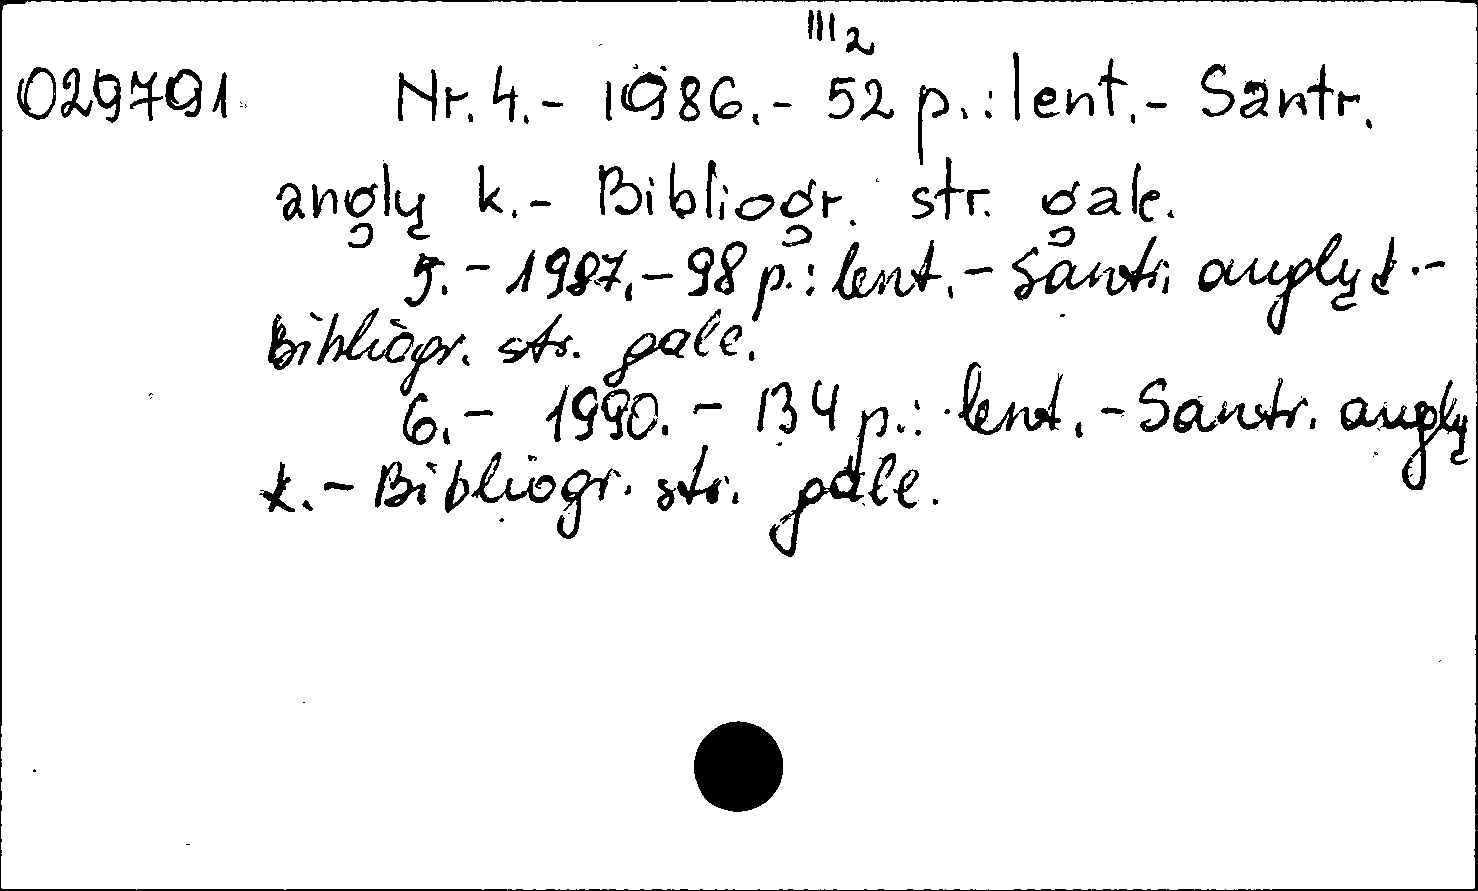 III2
029791 Nr. 4. - 1986. - 52 p. : lent. - Santr.
anglų k. - Bibliogr. str. gale.
5. - 1987. - 98 p. : lent. - Santr. anglų k. -
Bibliogr. str. gale.
6. - 1990. - 134 p. : lent. - Santr. anglų
k. - Bibliogr. str. gale.